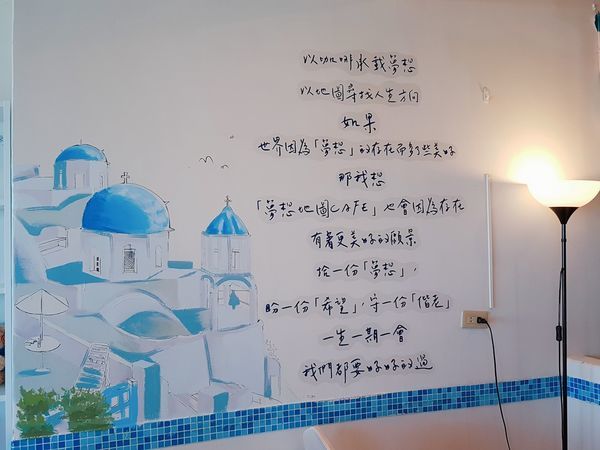 以咖啡承載夢想
以地圖尋找人生方向
如果
世界因為「夢想」的存在而多些美好
那我想
「夢想地圖CAFE」也會因為存在
有著更美好的願景
拾一份「夢想」，
盼一份「希望」，守一份「偕老」
一生一期一會
我們都要好好的過